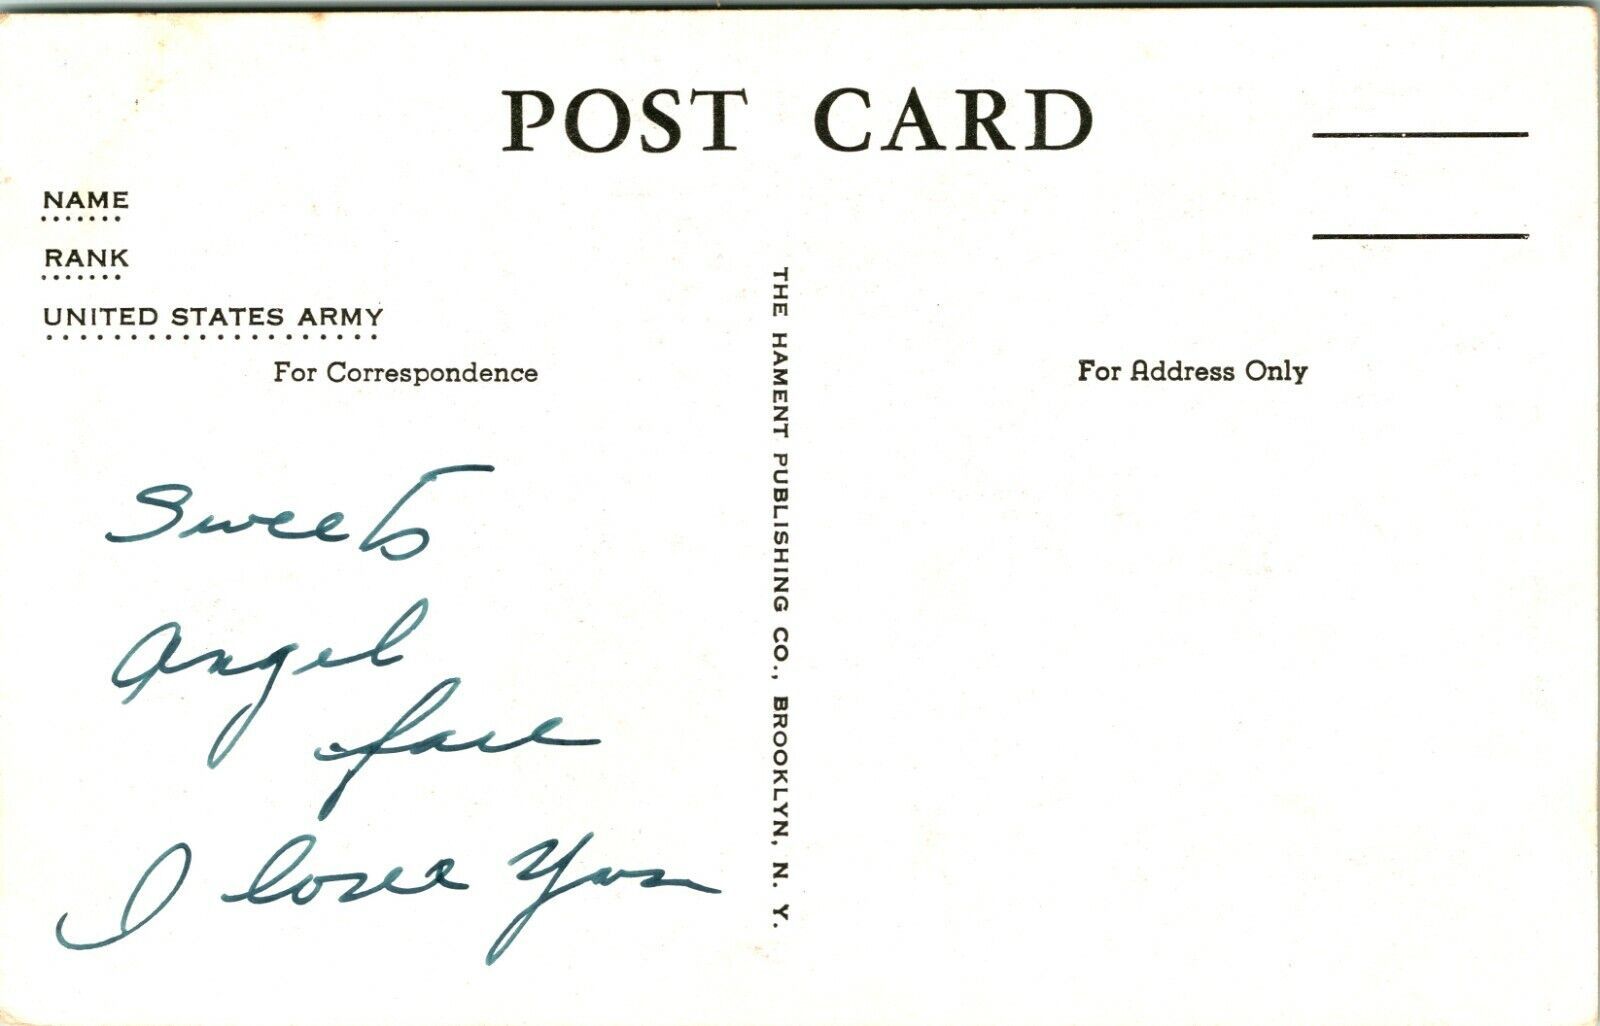 POST CARD
NAME
RANK
UNITED STATES ARMY
For Correspondence
For Address Only
THE HAMENT PUBLISHING CO., BROOKLYN, N. Y.
Sweets
Angel
face
I love You